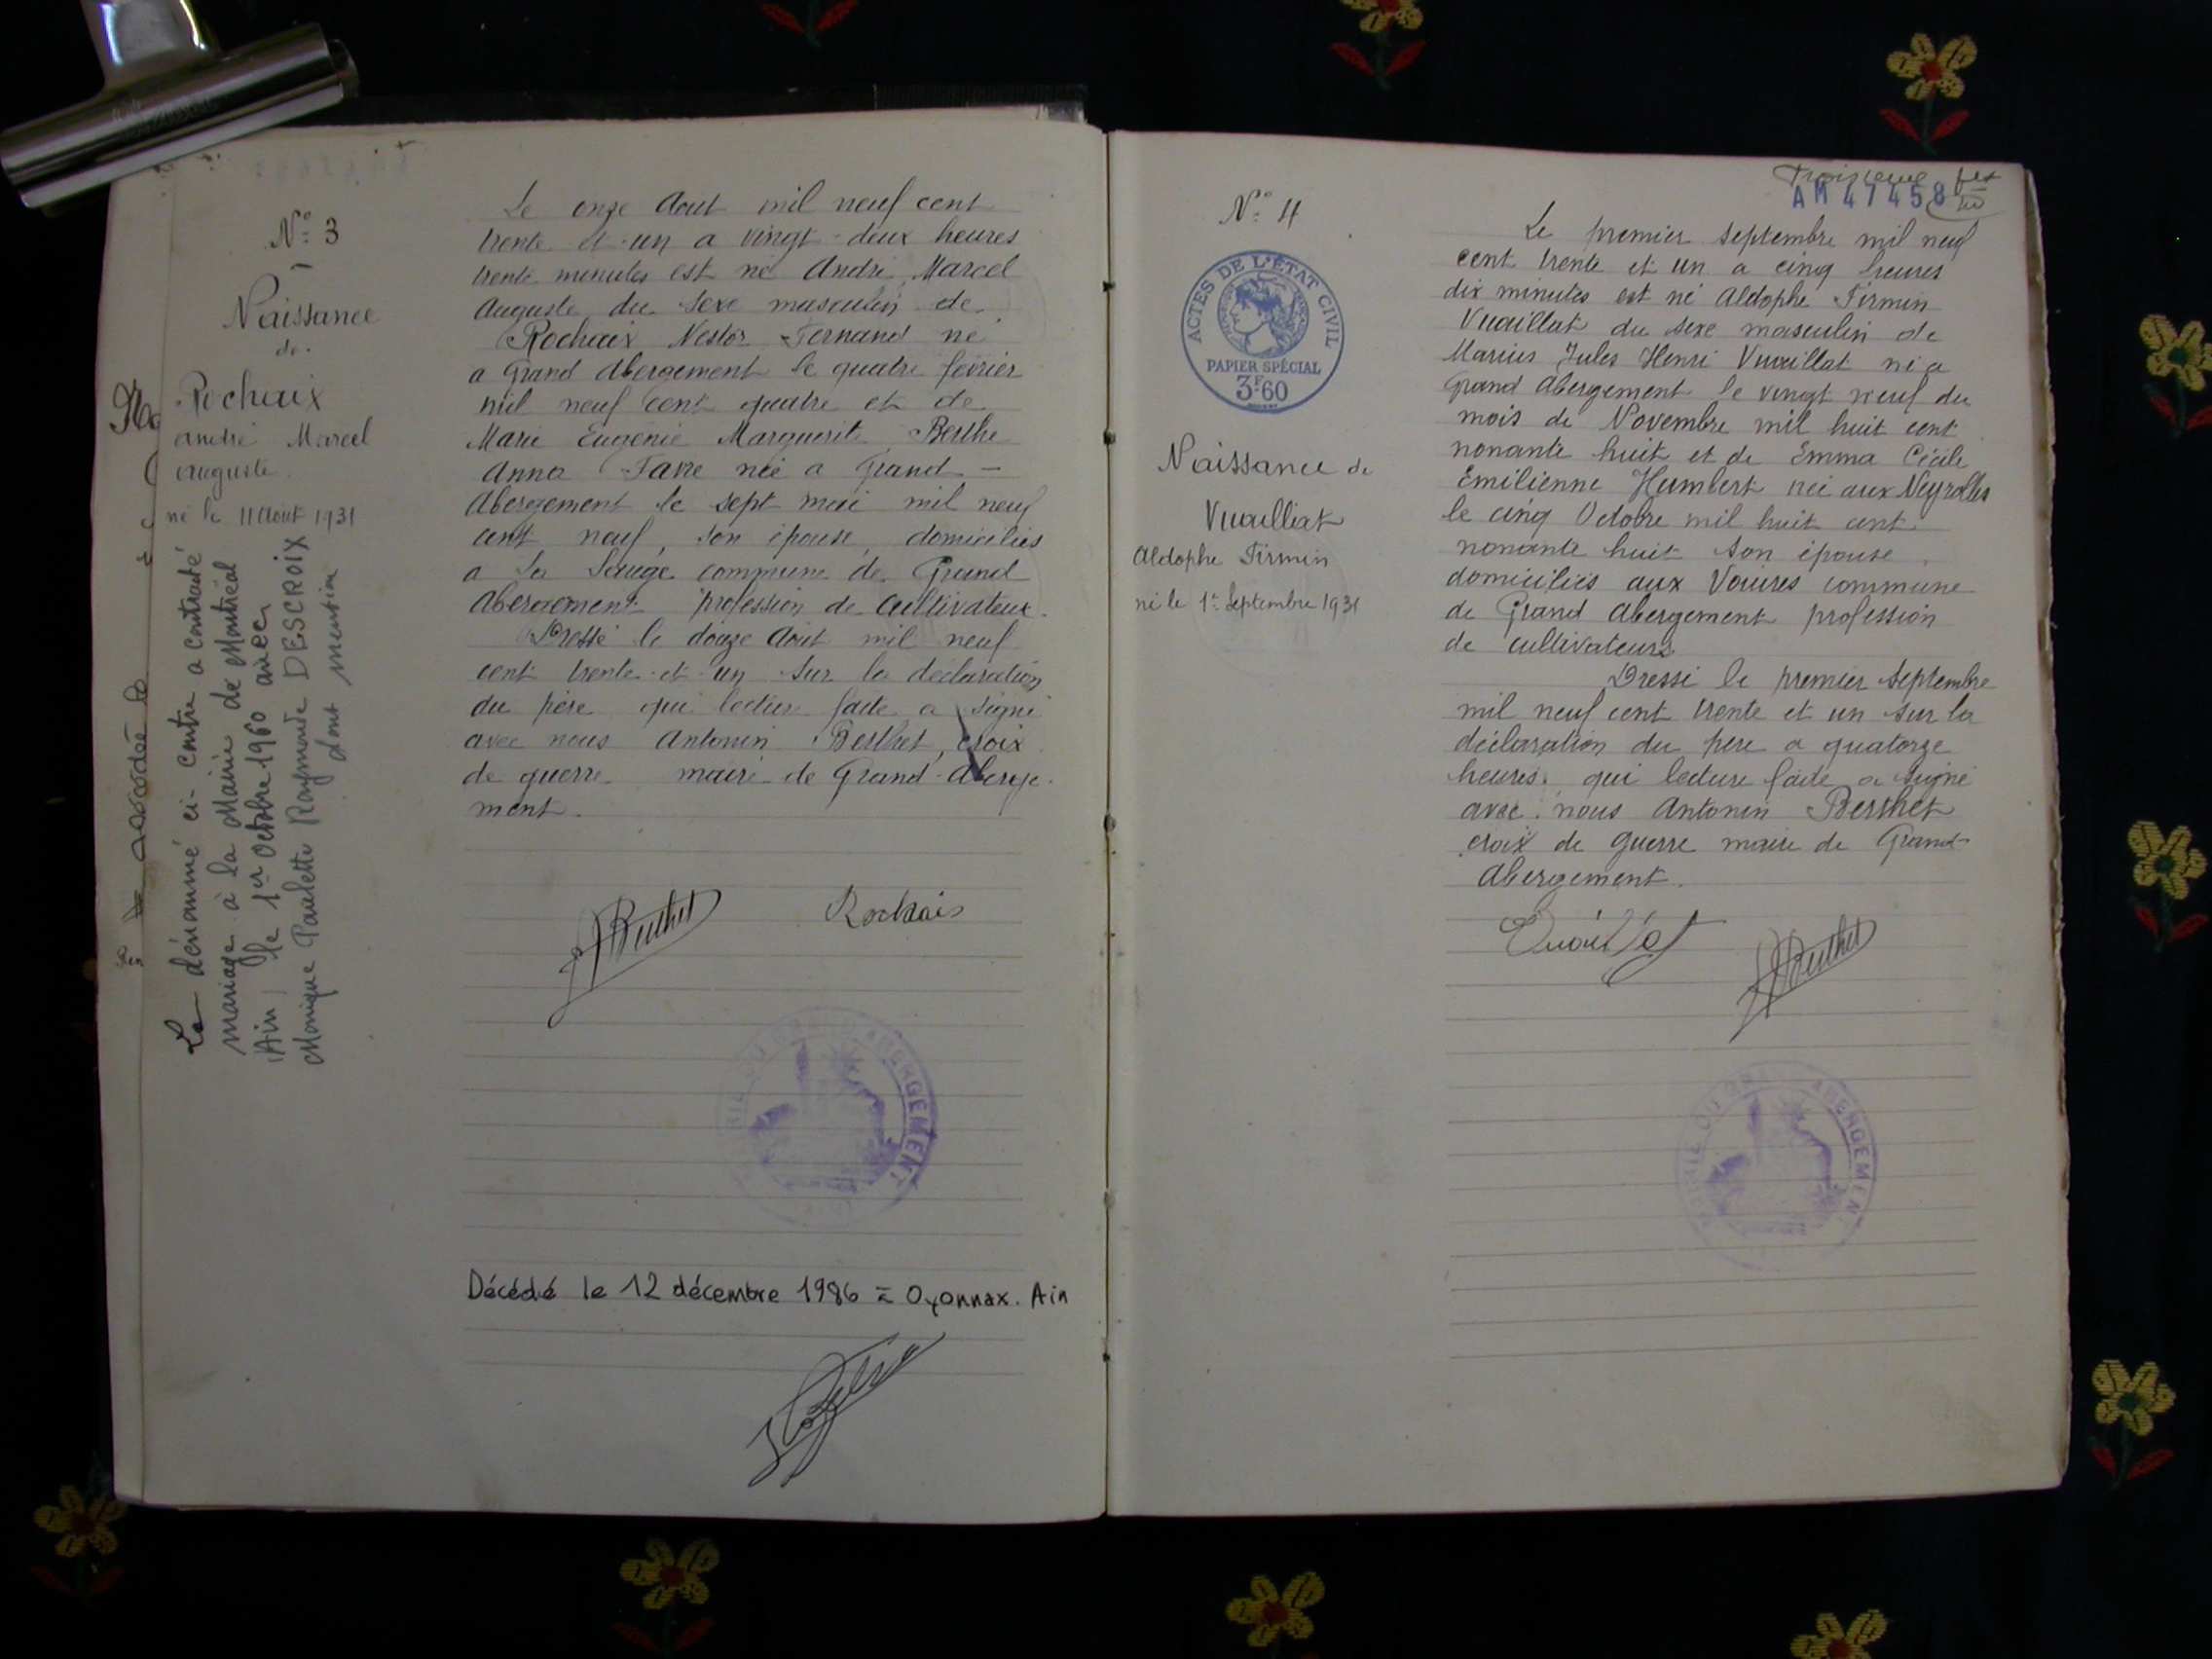 N° 3
Naissance
de
Rochaix
André Marcel
Auguste
né le 11 Août 1931
Le dénommé ci-contre a contracté
mariage à la Mairie de Montréal
(Ain) le 1er Octobre 1960 avec
Monique Paulette Raymonde DESCROIX
dont mention
Le onze Aout mil neuf cent
trente et un a vingt-deux heures
trente minutes est né André Marcel
Auguste du sexe masculin de
Rochaix Nestor Fernand né
a Grand Abergement le quatre février
mil neuf cent quatre et de
Marie Eugénie Marguerite Berthe
Anna Favre née a Grand-
Abergement le sept mai mil neuf
cent neuf, son épouse, domiciliés
a La Sauge commune de Grand
Abergement profession de cultivateur.
Dressé le douze Aout mil neuf
cent trente et un sur la déclaration
du père qui lecture faite a signé
avec nous Antonin Berthet, croix
de guerre maire de Grand-Aberge-
ment.
ABerthet Rochaix
ABERGEMENT
Décédé le 12 décembre 1986 à Oyonnax. Ain
Troisième
AM47458
N° 4
ACTES DE L'ÉTAT CIVIL
PAPIER SPÉCIAL
3F60
Naissance de
Vuailliat
Aldophe Firmin
né le 1er Septembre 1931
Le premier septembre mil neuf
cent trente et un a cinq heures
dix minutes est né Aldophe Firmin
Vuaillat du sexe masculin de
Marius Jules Henri Vuaillat né a
Grand Abergement le vingt neuf du
mois de Novembre mil huit cent
nonante huit et de Emma Cécile
Emilienne Humbert née aux Neyrolles
le cinq Octobre mil huit cent
nonante huit son épouse
domiciliés aux Vouires commune
de Grand Abergement profession
de cultivateurs
Dressé le premier septembre
mil neuf cent trente et un sur la
déclaration du père a quatorze
heures, qui lecture faite a signé
avec nous Antonin Berthet
croix de guerre maire de Grand-
Abergement.
Vuaillat ABerthet
MAIRIE DU GRAND ABERGEMENT